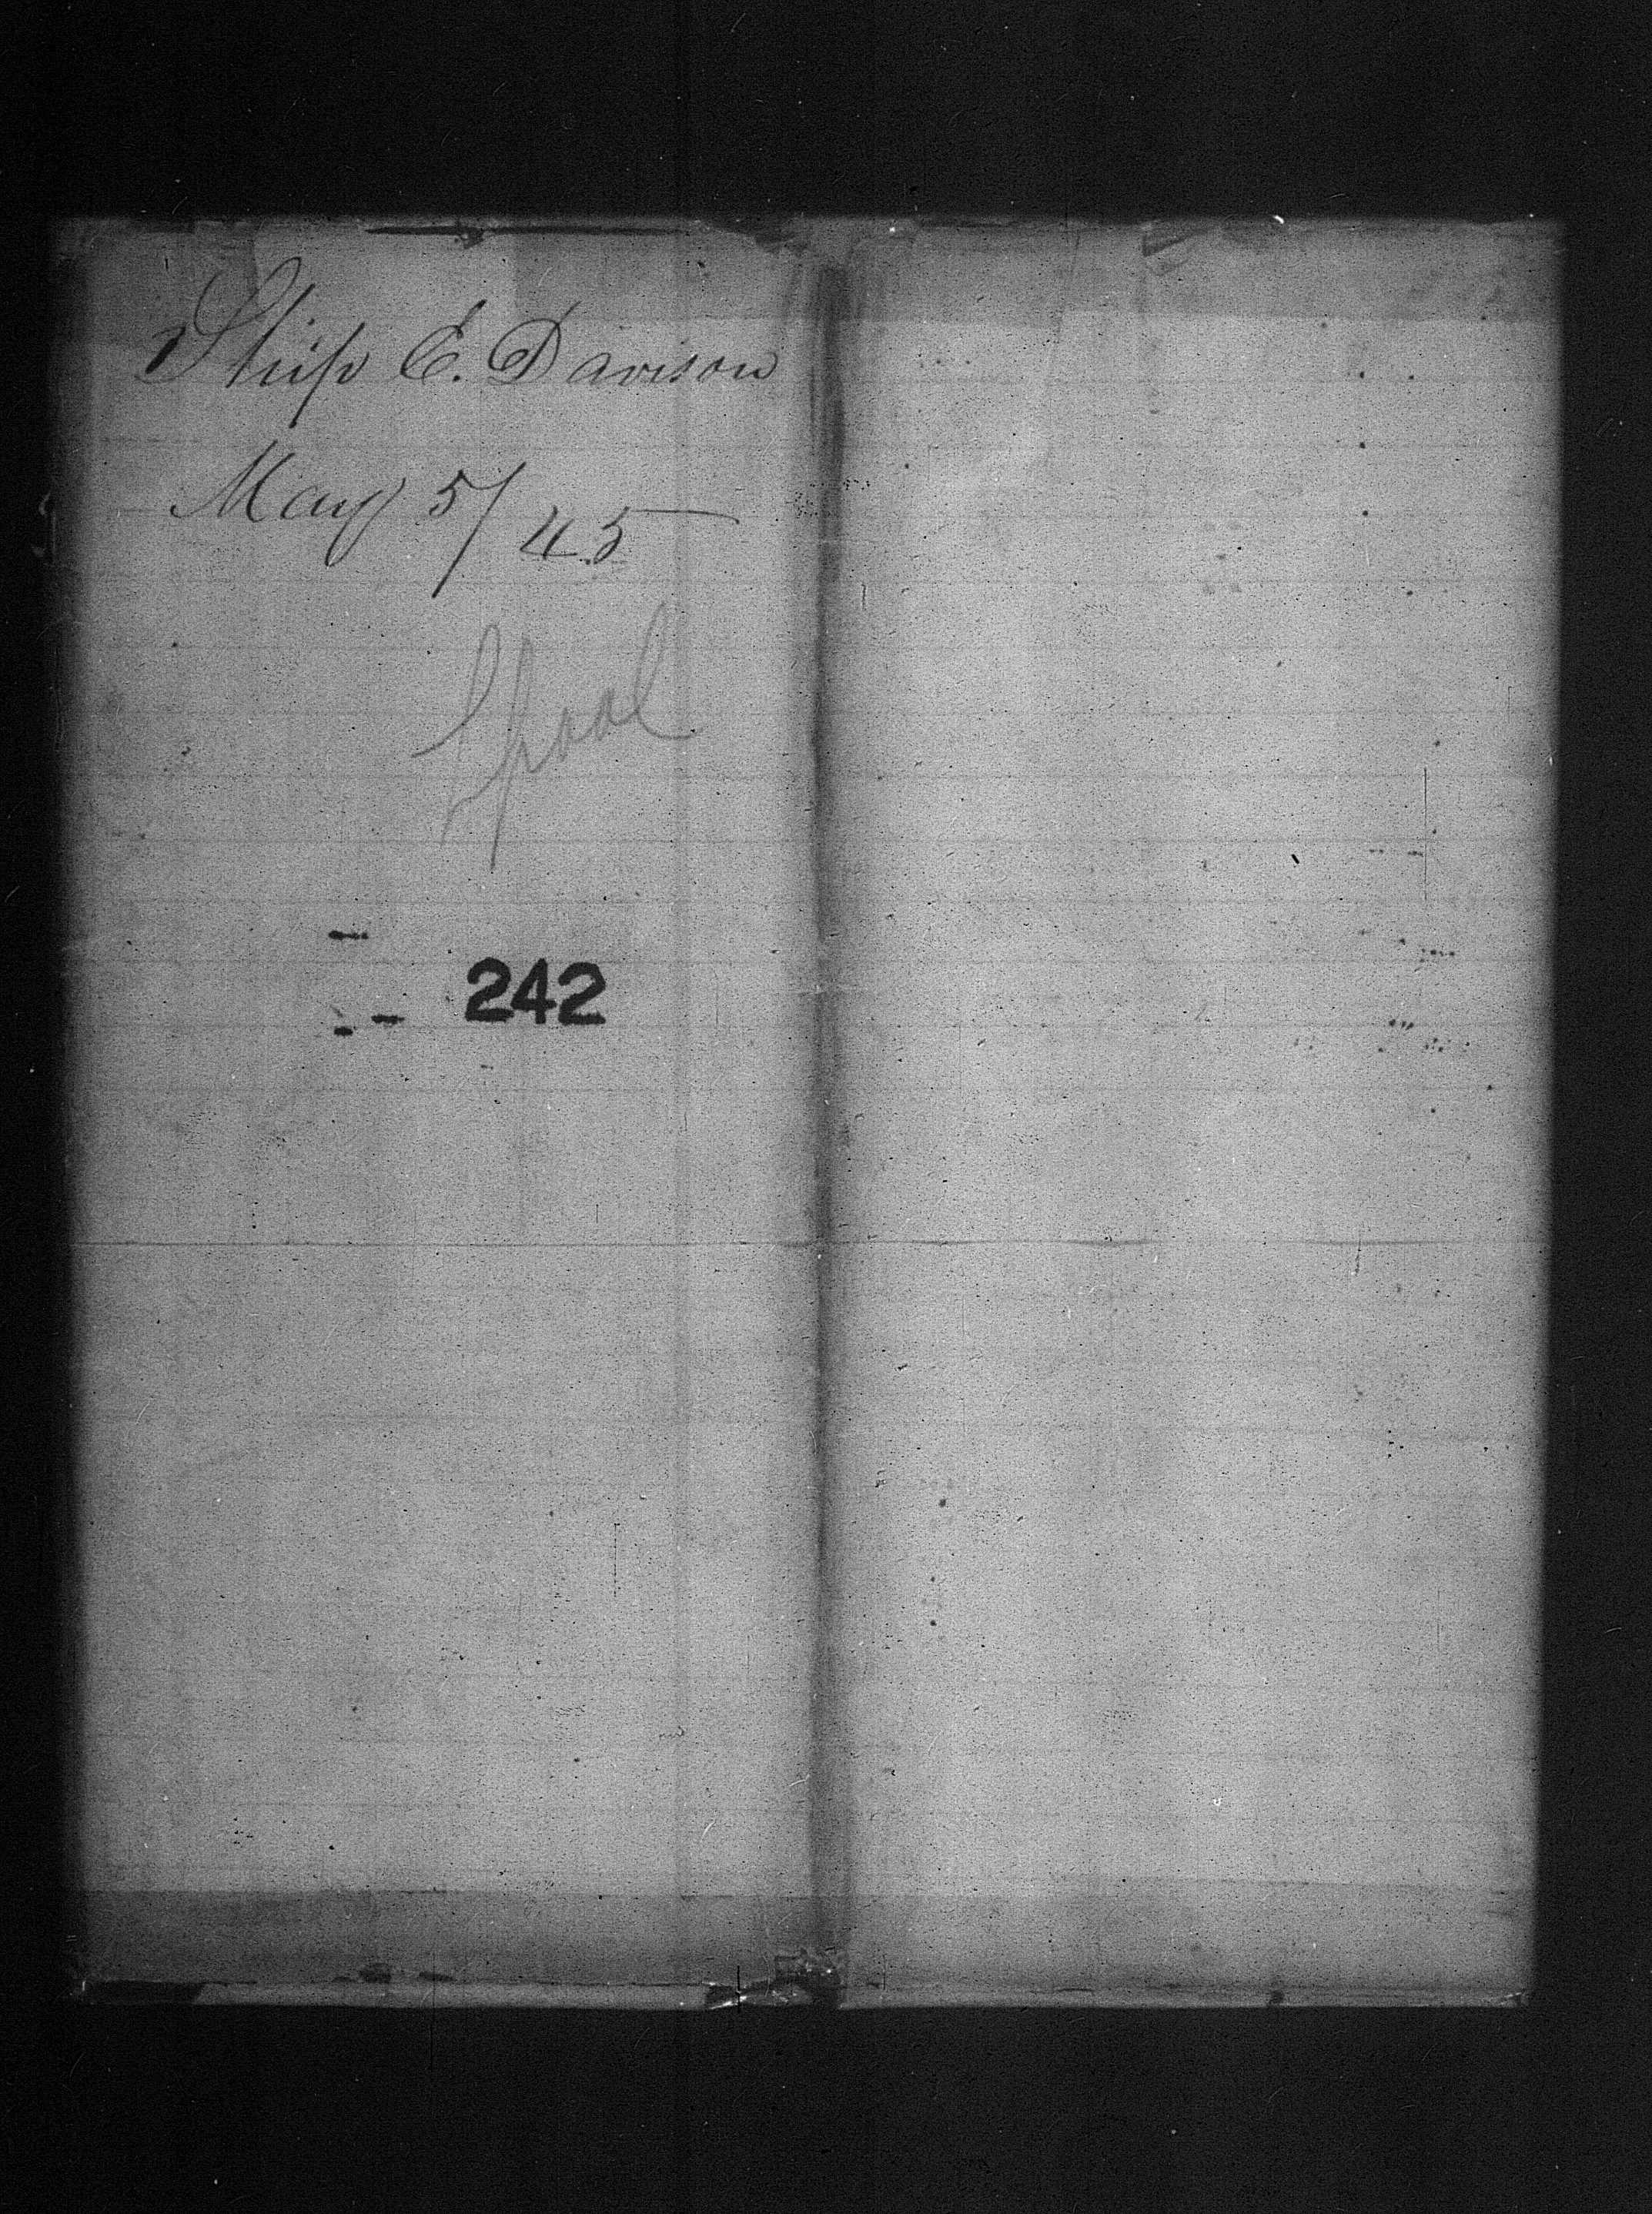 Ship E. Davison
May 5/45
Lpool
242